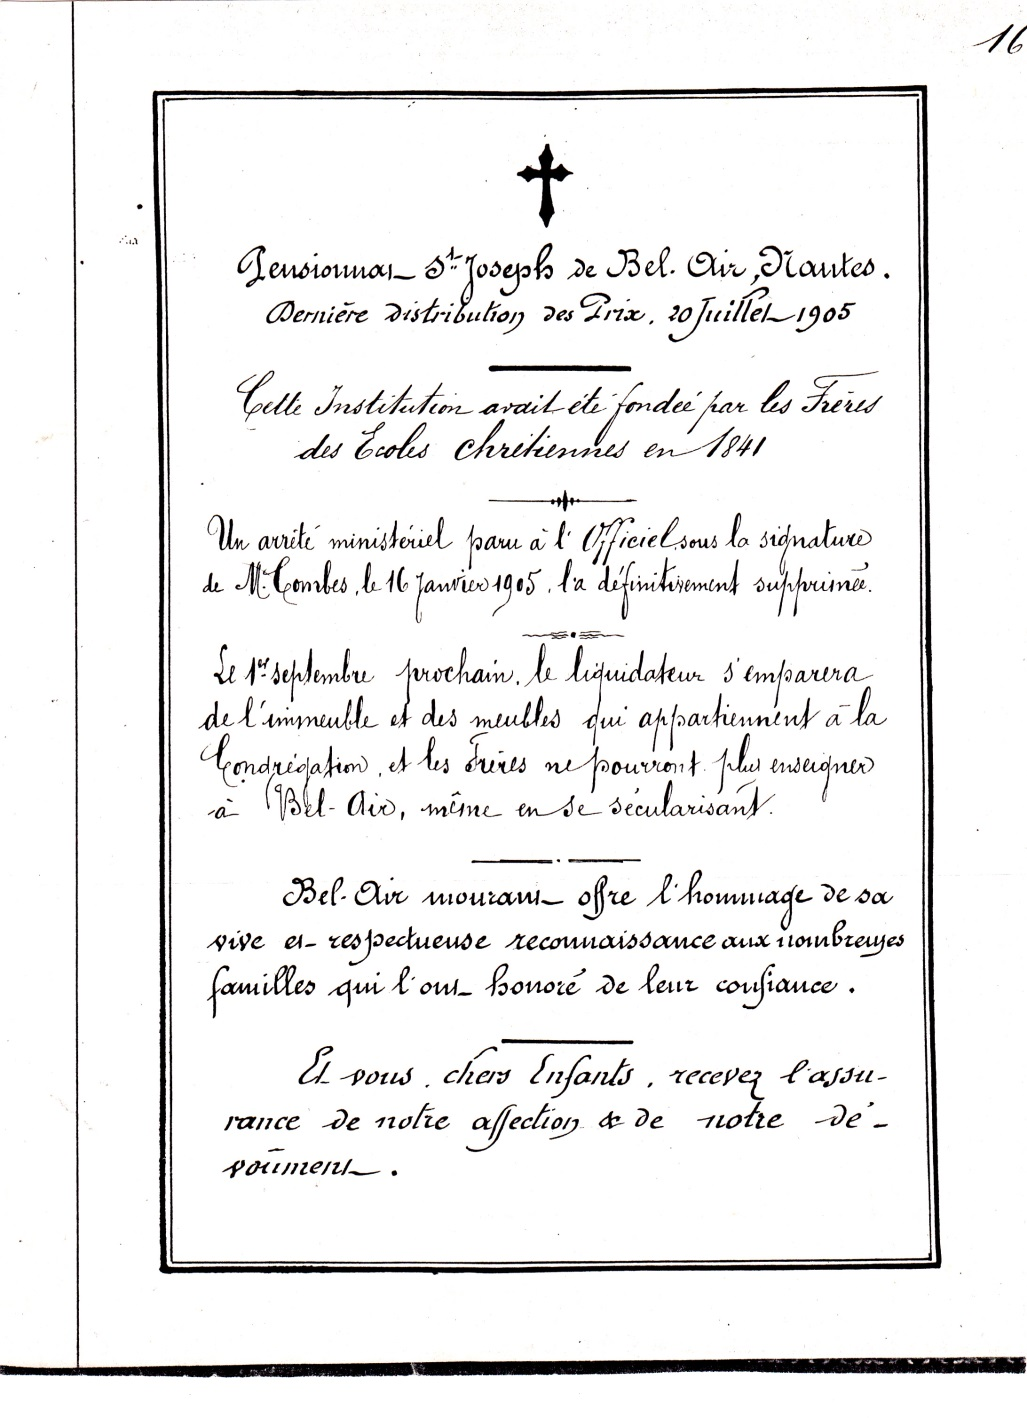 16
Pensionnat St Joseph de Bel-Air, Nantes.
Dernière distribution des Prix, 20 Juillet 1905
Cette Institution avait été fondée par les Frères
des Ecoles chrétiennes en 1841
Un arrêté ministériel paru à l'Officiel, sous la signature
de Mr. Combes, le 16 Janvier 1905, l'a définitivement supprimée.
Le 1er septembre prochain, le liquidateur s'emparera
de l'immeuble et des meubles qui appartiennent à la
Congrégation, et les Frères ne pourront plus enseigner
à Bel-Air, même en se sécularisant.
Bel-Air mourant offre l'hommage de sa
vive et respectueuse reconnaissance aux nombreuses
familles qui l'ont honoré de leur confiance.
Et vous, chers Enfants, recevez l'assu-
rance de notre affection & de notre dé-
voûment.